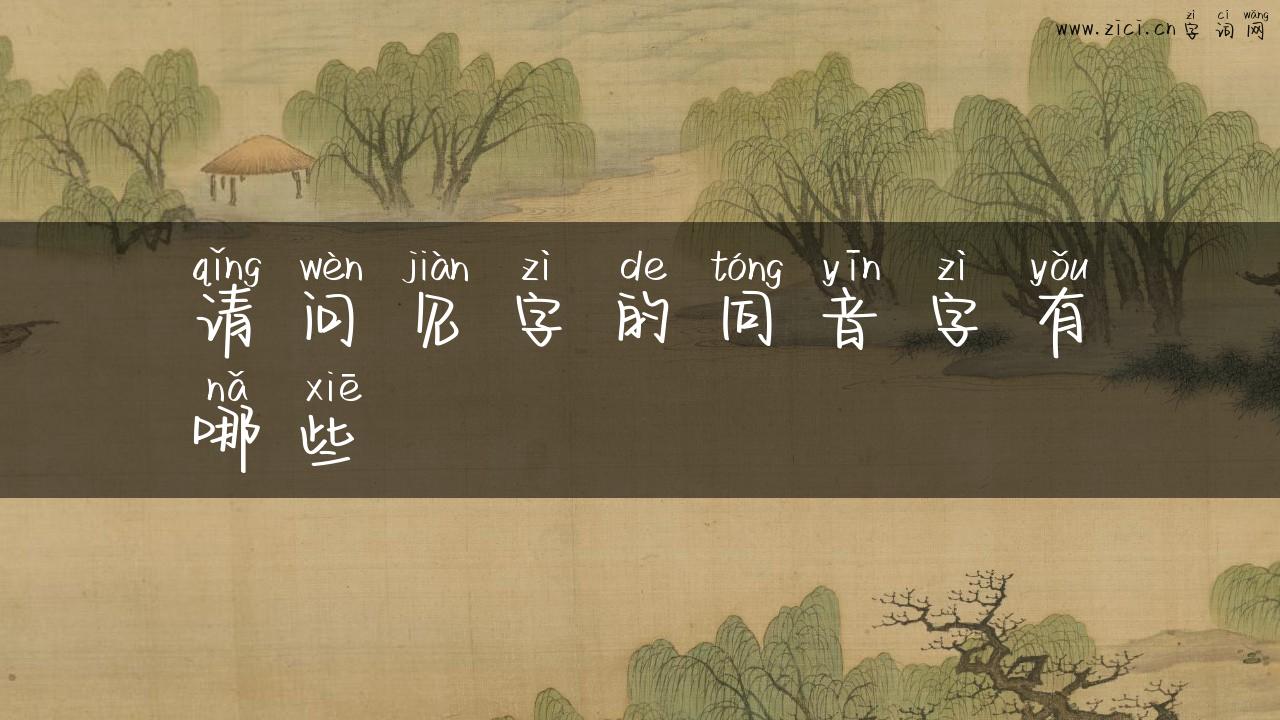 zì cí wǎng
www.zici.cn字词网
qǐng wèn jiàn zì de tóng yīn zì yǒu
请问见字的同音字有
nǎ xiē
哪些